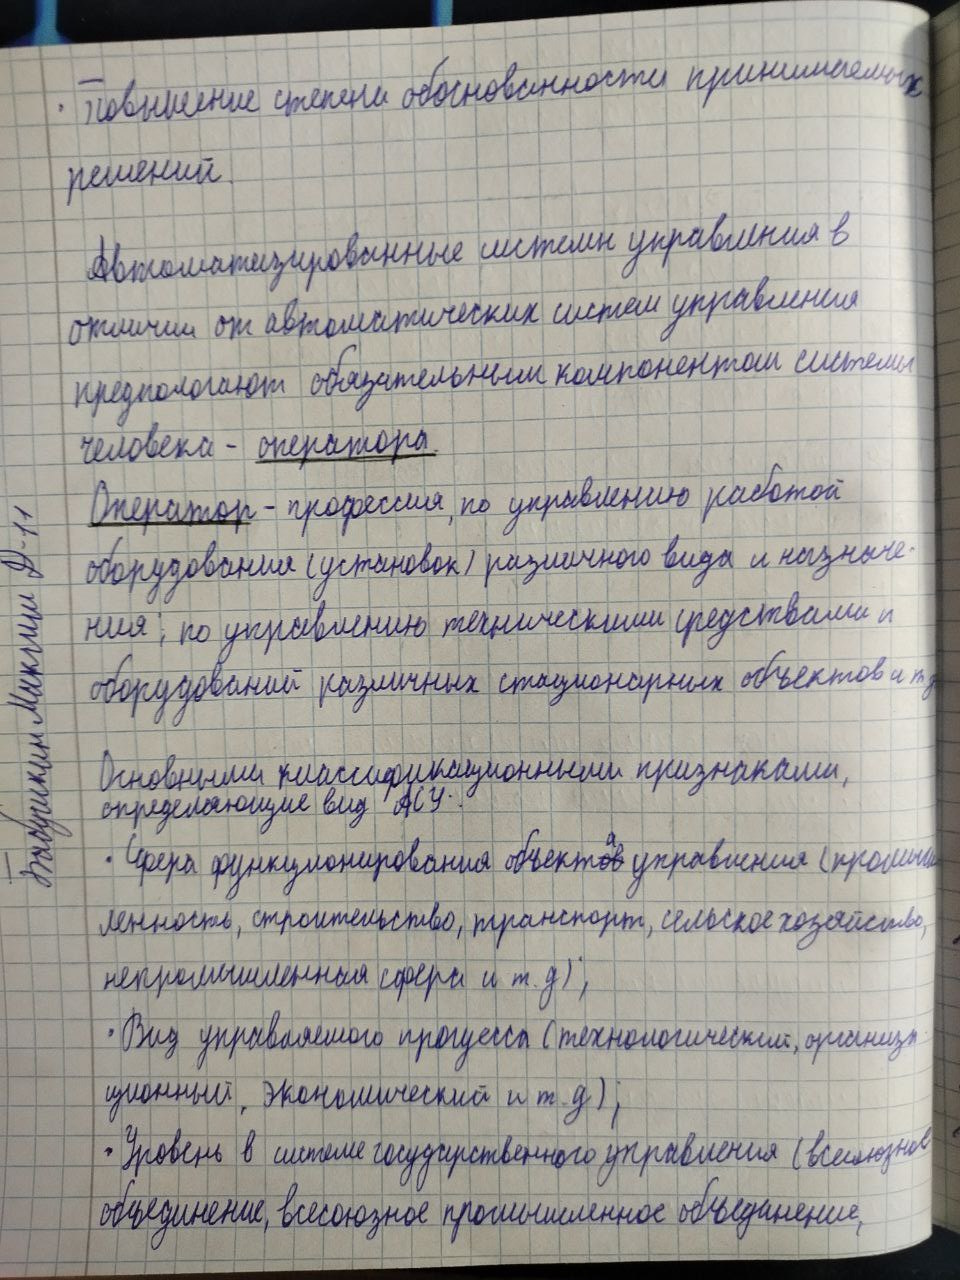 · Повышение степени обоснованности принимаемых
решений.
Автоматизированные системы управления в
отличии от автоматических систем управления
предпологают обязательным компонентом системы
человека - оператора.
Оператор - профессия, по управлению работой
оборудования (установок) различного вида и назначе-
ния; по управлению техническими средствами и
оборудований различных стационарных объектов и т.д
Основными классификационными признаками,
определяющие вид АСУ:
· Сфера функционирования объекта управления (промыш
ленность, строительство, транспорт, сельское хозяйство,
непромышленная сфера и т.д);
· Вид управляемого процесса (технологический, организа
ционный, экономический и т.д);
· Уровень в системе государственного управления (всесоюзное
объединение, всесоюзное промышленное объединение,
Бабушкин Максим Д-11